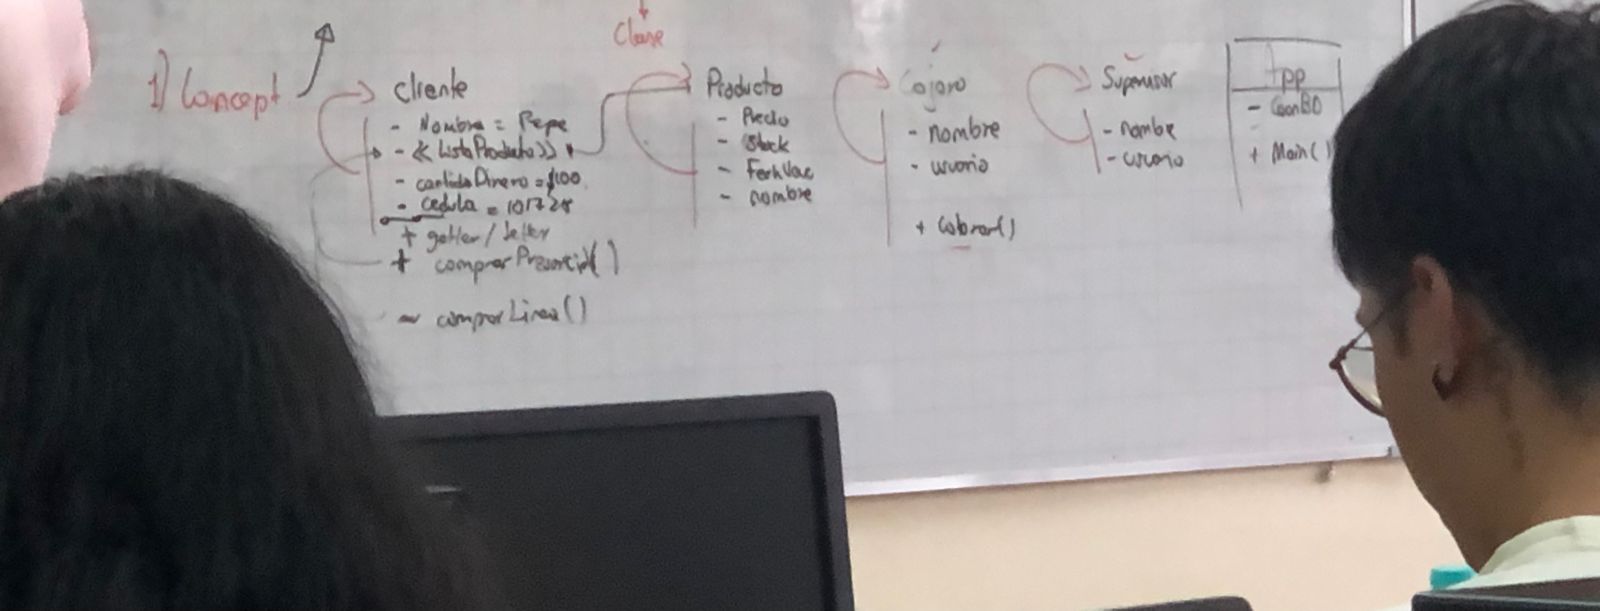 Clase
1) Concept
cliente
- Nombre = Pepe
- << ListaProducto >>
- cantidaDinero = $100
- cedula = 101728
+ getter / setter
+ comprarPresencial()
~ comprarLinea()
Producto
- Precio
- Stock
- FechVac
- nombre
Cajero
- nombre
- usuario
+ cobrar()
Supervisor
- nombre
- usuario
App
- ConnBD
+ Main()